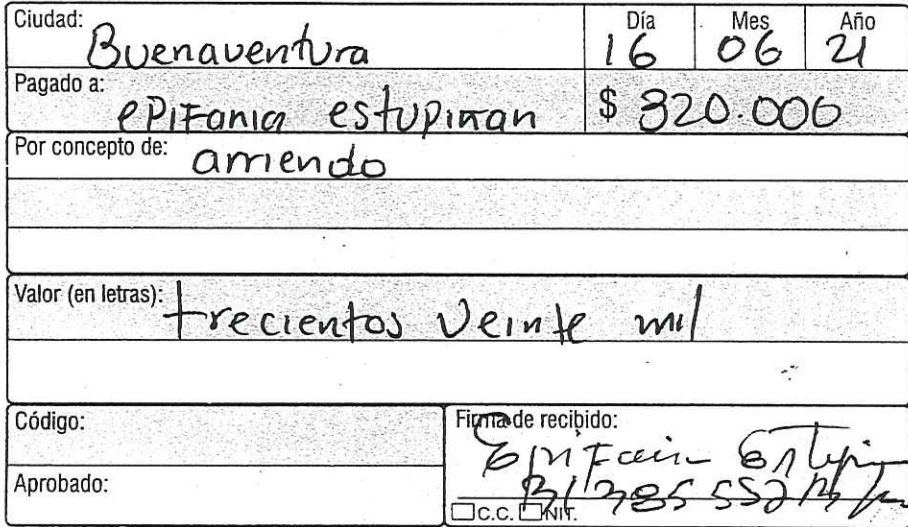 Ciudad: Buenaventura Día 16 Mes 06 Año 21
Pagado a: ePiFania estupiñan $ 320.000
Por concepto de: arriendo
Valor (en letras): trecientos veinte mil
Código:
Firma de recibido:
Aprobado:
C.C. NIT.